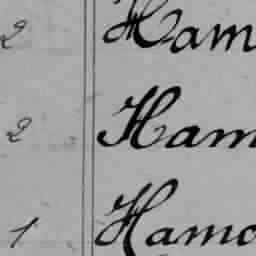 2 Ham
2 Ham
1 Hamo